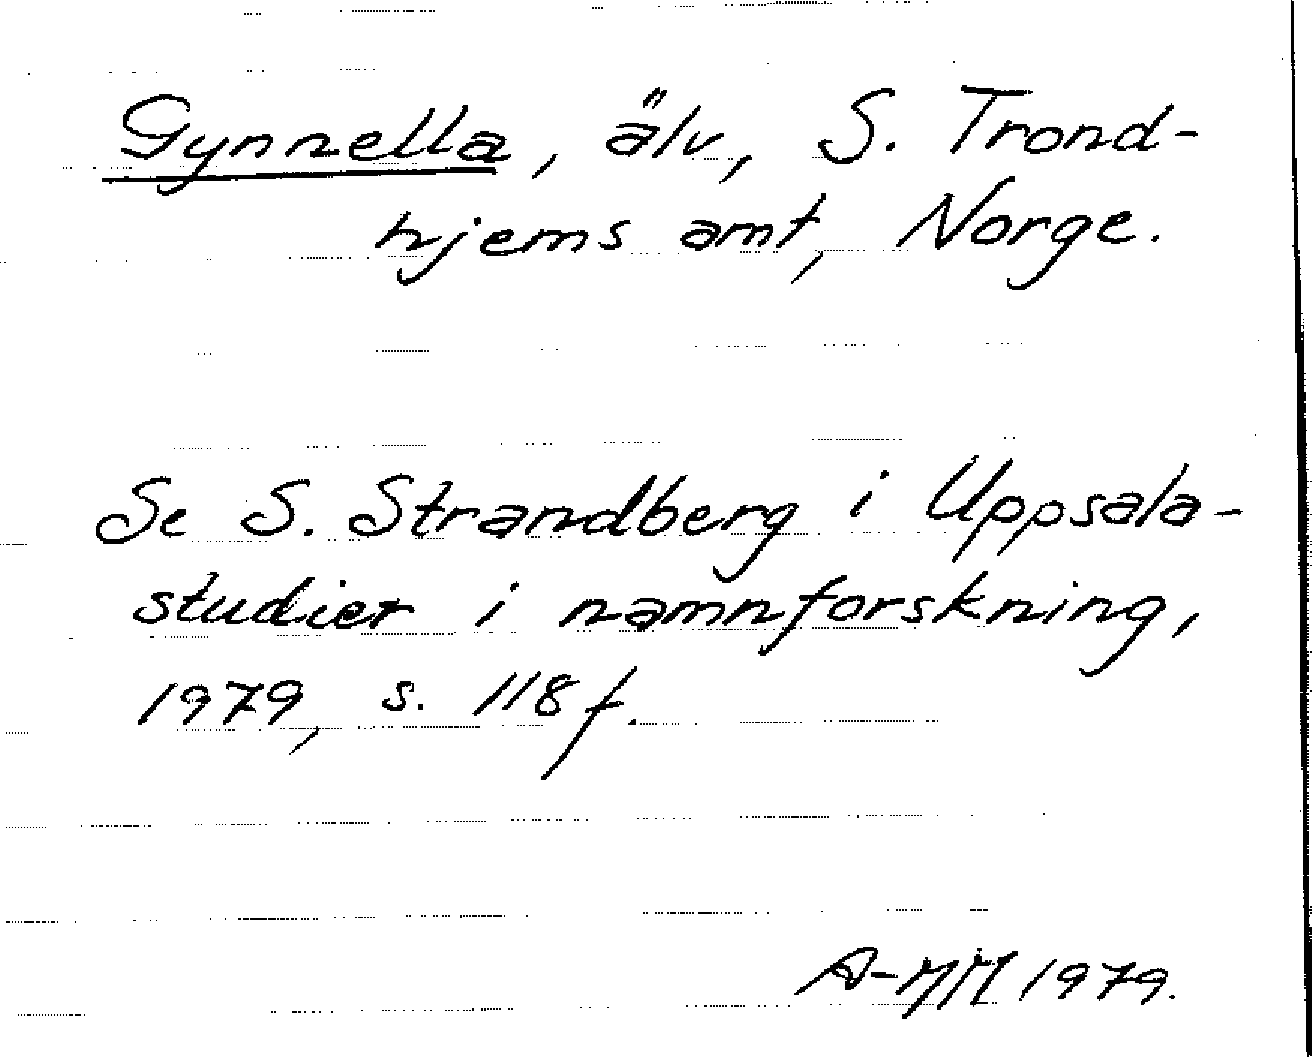 Gynnella, älv, S. Trond-
hjems amt, Norge.
Se S. Strandberg i Uppsala-
studier i namnforskning,
1979, s. 118 f.
A-MM 1979.